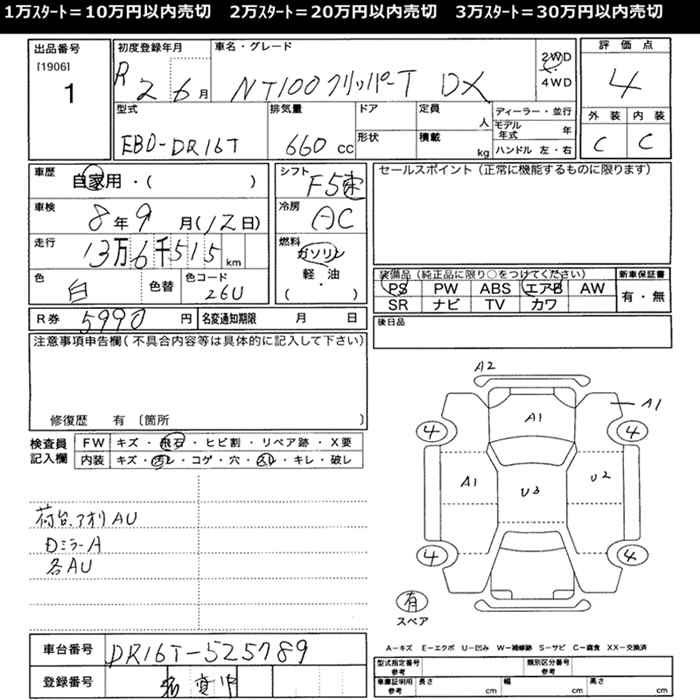 1万ｽﾀｰﾄ＝10万円以内売切　2万ｽﾀｰﾄ＝20万円以内売切　3万ｽﾀｰﾄ＝30万円以内売切
出品番号
[1906]
1
初度登録年月
R2 6月
車名・グレード
NT100クリッパーT DX
2WD
4WD
評価点
4
外装 内装
C C
型式
EBD-DR16T
排気量
660 cc
ドア
形状
定員
人
積載
kg
ディーラー・並行
モデル年式 年
ハンドル 左・右
車歴
自家用・( )
車検
8年9月(12日)
走行
13万6千515km
色
白
色替
色コード
26U
シフト
F5速
冷房
AC
燃料
ガソリン
軽・油
( ・ )
セールスポイント（正常に機能するものに限ります）
装備品（純正品に限り○をつけてください）
PS PW ABS エアB AW
SR ナビ TV カワ
新車保証書
有・無
R券 5990円
名変通知期限 月 日
後日品
注意事項申告欄(不具合内容等は具体的に記入して下さい)
修復歴 有〔箇所 〕
検査員記入欄
FW キズ・飛石・ヒビ割・リペア跡・X要
内装 キズ・汚レ・コゲ・穴・スレ・キレ・破レ
荷台、アオリAU
DミラーA
各AU
A2
A1
A1
4
4
A1
U3
U2
4
4
有
スペア
車台番号
DR16T-525789
登録番号
A－キズ E－エクボ U－凹み W－補修跡 S－サビ C－腐食 XX－交換済
型式指定番号 参考
類別区分番号 参考
車庫証明用 参考
長さ cm
幅 cm
高さ cm